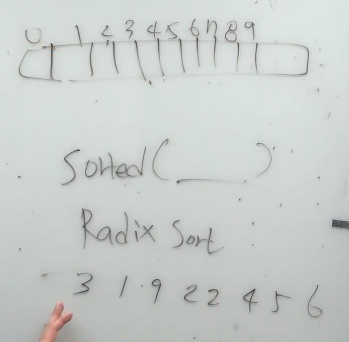 0 1 2 3 4 5 6 7 8 9
Sorted(____)
Radix Sort
3 1 9 2 2 4 5 6